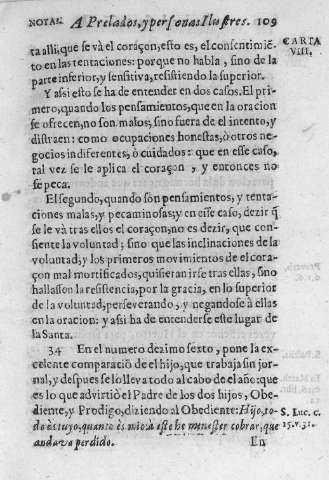 NOTAS. A Prelados, y personas Ilustres. 109
CARTA
VIII.
ta alli, que se và el coraçon, esto es, el consentimiẽ-
to en las tentaciones: porque no habla, sino de la
parte inferior, y sensitiva, resistiendo la superior.
Y assi esto se ha de entender en dos casos. El pri-
mero, quando los pensamientos, que en la oracion
se ofrecen, no son malos; sino fuera de el intento, y
distraen: como ocupaciones honestas, ò otros ne-
gocios indiferentes, ò cuidados: que en esse caso,
tal vez se le aplica el coraçon, y entonces no
se peca.
El segundo, quando son pensamientos, y tenta-
ciones malas, y pecaminosas; y en esse caso, dezir q̃
se le và tras ellos el coraçon, no es dezir, que con-
siente la voluntad; sino que las inclinaciones de la
voluntad; y los primeros movimientos de el cora-
çon mal mortificados, quisieran irse tras ellas, sino
hallasson la resistencia, por la gracia, en lo superior
de la voluntad, perseverando, y negandose à ellas
en la oracion: y assi ha de entenderse este lugar de
la Santa.
34 En el numero dezimo sexto, pone la ex-
celente comparaciõ de el hijo, que trabaja sin jor-
nal, y despues se lo lleva todo al cabo de el año: que
es lo que advirtiò el Padre de los dos hijos, Obe-
diente, y Prodigo, diziendo al Obediente: Hijo, to-
do es tuyo, quanto es mio: à este he menester cobrar, que
andava perdido.
S. Luc. c.
15. v. 31.
En